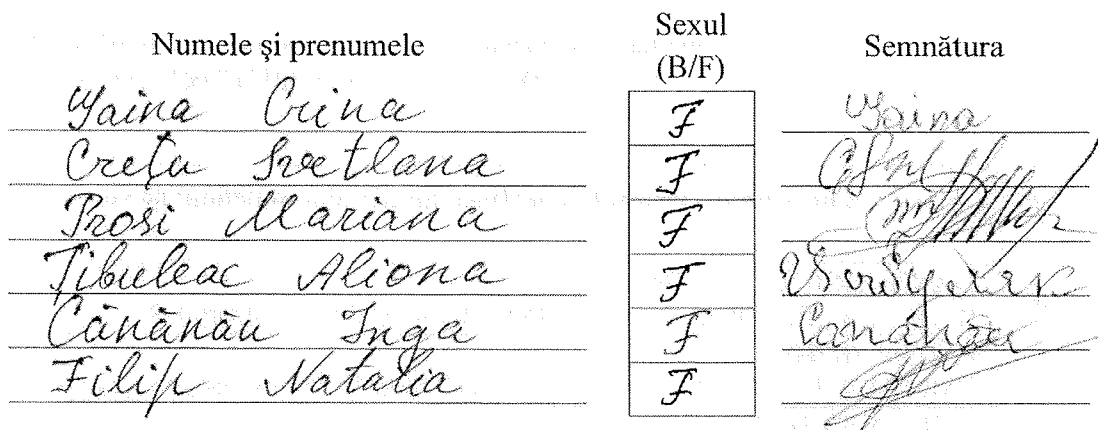 Numele și prenumele Sexul (B/F) Semnătura
Crina F
Crețu Svetlana F
Prosi Mariana F
Țibuleac Aliona F
Cănănău Inga F Cănănău
Filip Natalia F